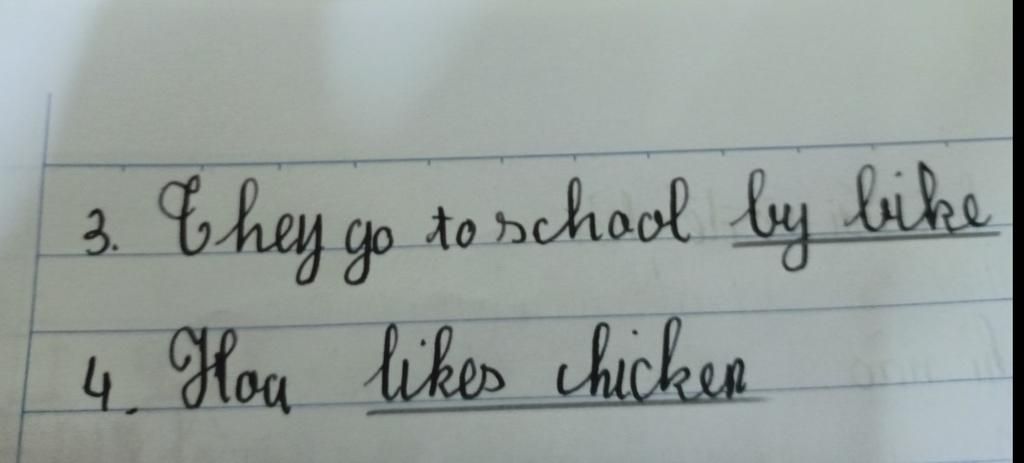 3. They go to school by bike
4. Hoa likes chicken